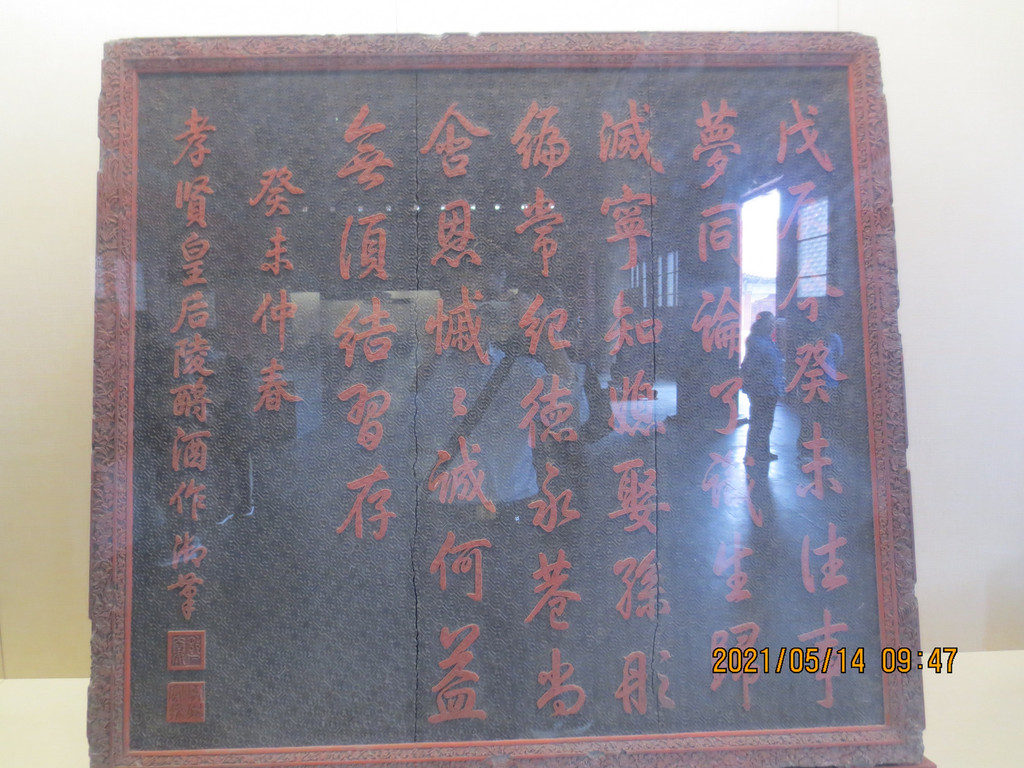 戊辰今癸未往事
夢同論了識生歸
滅寧知媳娶孫彤
編常紀德永巷尚
含恩慽〻誠何益
無須結習存
癸未仲春
孝賢皇后陵酹酒作御筆
2021/05/14 09:47